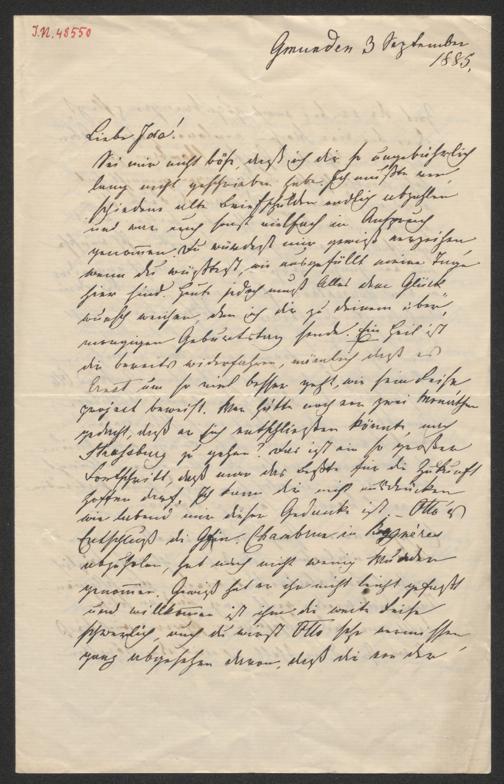 I.N. 48550
Gmunden 3 September
1885.
Liebe Ida!
Sei mir nicht böse, daß ich dir so ungebührlich
lang nicht geschrieben habe. Ich mußte ver¬
schiedene alte Briefschulden endlich abzahlen
und war auch sonst vielfach in Anspruch
genommen. Du würdest mir gewiß verzeihen
wenn du wüßtest, wie ausgefüllt meine Tage
hier sind. Heute jedoch muß Alles dem Glück¬
wunsch weichen, den ich dir zu deinem über¬
morgigen Geburtstag sende. Ein Heil ist
dir bereits widerfahren, nämlich daß es
Ernst um so viel besser geht, wie sein Reise
project beweist. Wer hätte noch vor zwei Monathen
gedacht, daß er sich entschließen könnte, nach
Strassburg zu gehen? Das ist ein so großer
Fortschritt, daß man das Beste für die Zukunft
hoffen darf. Ich kann dir nicht ausdrücken
wie labend mir dieser Gedanke ist. – Otto's
Entschluß die Gfin. Chambrun in
abzuholen, hat mich nicht wenig Wunder
genommen. Gewiß hat er ihn nicht leicht gefaßt
und willkommen ist ihm die weite Reise
schwerlich, auch du wirst Otto sehr vermissen
ganz abgesehen davon, daß die von der